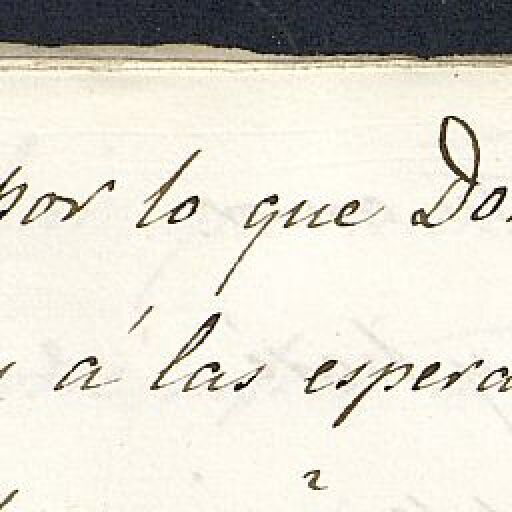 por lo que Don
á las espera